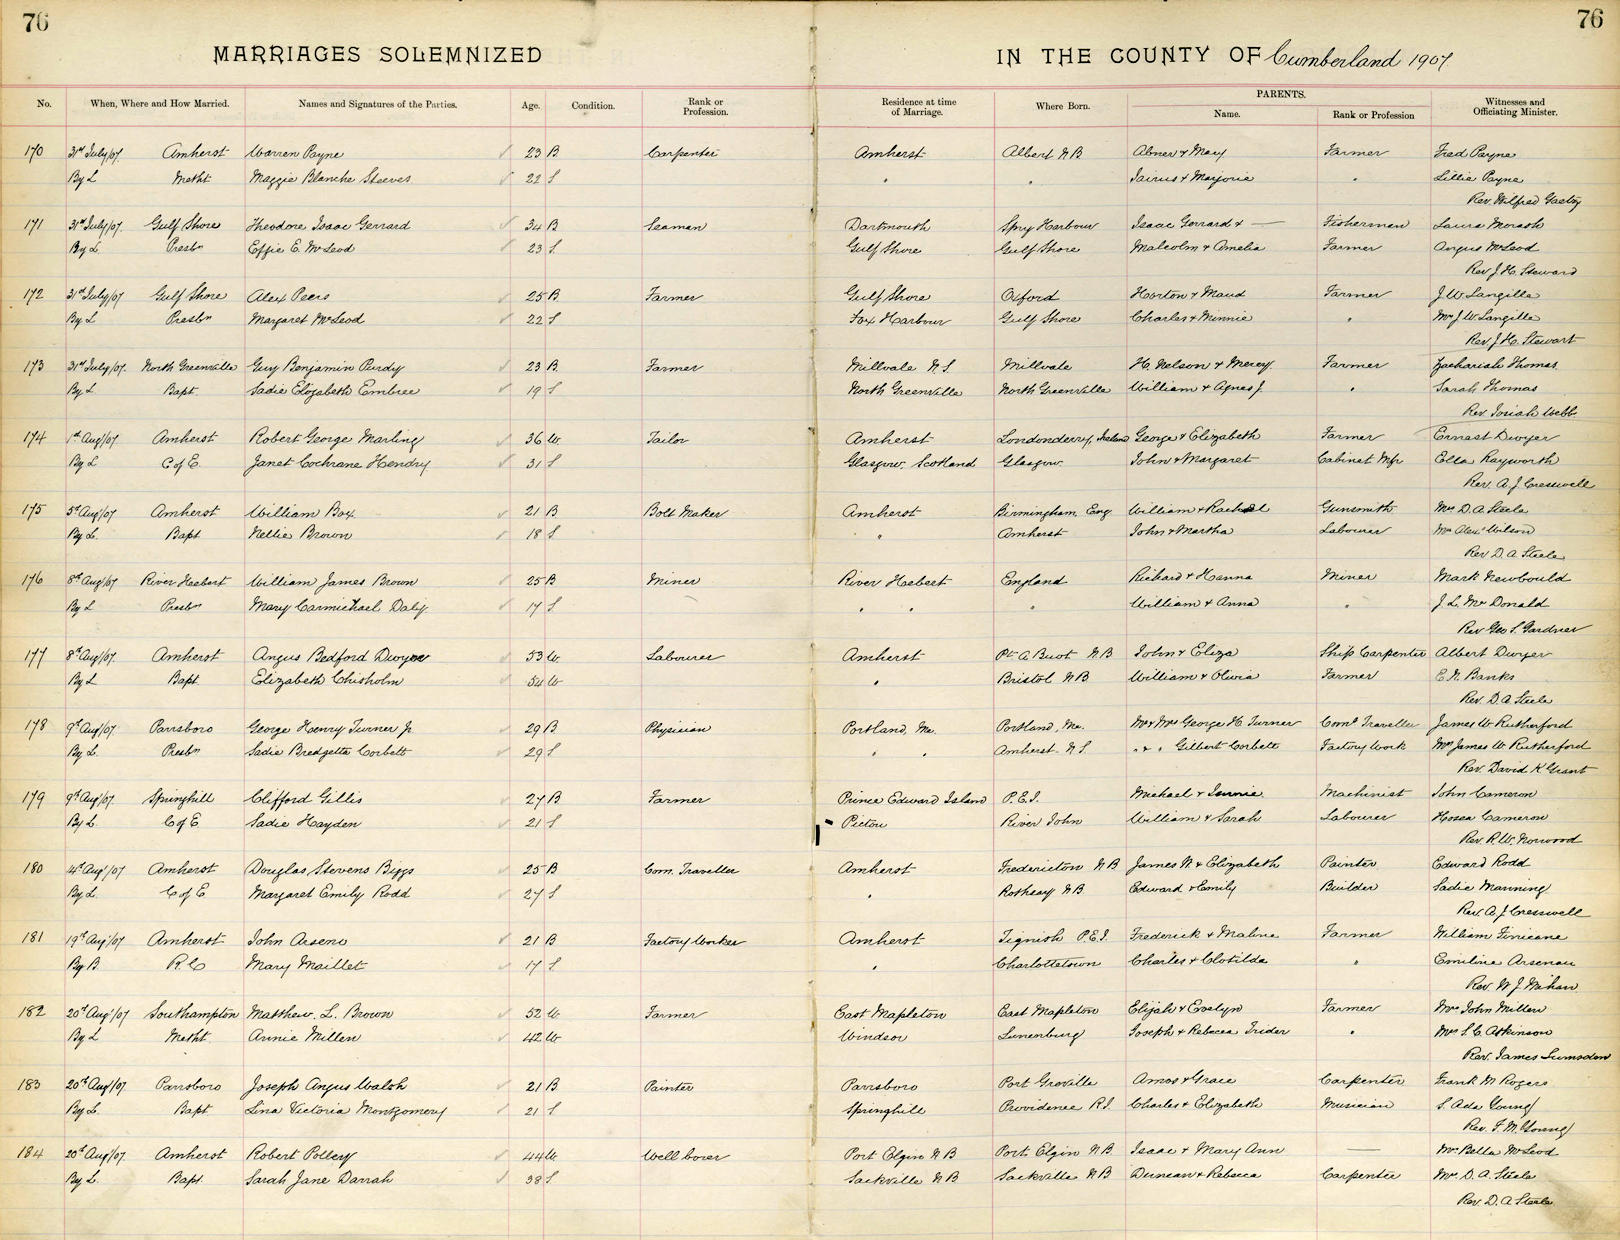 76 76
MARRIAGES SOLEMNIZED IN THE COUNTY OF Cumberland 1907
No. When, Where and How Married. Names and Signatures of the Parties. Age. Condition. Rank or Profession. Residence at time of Marriage. Where Born. PARENTS. Name. Rank or Profession Witnesses and Officiating Minister.
170 31st July/07 Amherst Warren Payne 23 B Carpenter Amherst Albert N B Abner & Mary Farmer Fred Payne
By L Metht Maggie Blanche Steeves 22 S " " Jairus & Marjorie " Lillie Payne
Rev. Wilfred Gaetz
171 31st July/07. Gulf Shore Theodore Isaac Gerrard 34 B Seaman Dartmouth Spry Harbour Isaac Gerrard & — Fisherman Laura Morash
By L. Presbn Effie E. McLeod 23 S. Gulf Shore Gulf Shore Malcolm & Amelia Farmer Angus McLeod
Rev J. H. Steward
172 31st July/07 Gulf Shore Alex Peers 25 B Farmer Gulf Shore Oxford Horton & Maud Farmer J. W. Langille
By L Presbn Margaret McLeod 22 S Fox Harbour Gulf Shore Charles & Minnie " Mrs J. W. Langille
Rev J. H. Stewart
173 31st July/07. North Greenville Guy Benjamin Purdy 23 B Farmer Millvale N S Millvale H. Nelson & Mercy Farmer Zachariah Thomas
By L Bapt. Sadie Elizabeth Embree 19 S North Greenville North Greenville William & Agnes J. " Sarah Thomas
Rev Josiah Webb.
174 1st Aug/07 Amherst Robert George Marling 36 W Tailor Amherst Londonderry, Ireland George & Elizabeth Farmer Ernast Dwyer
By L C of E. Janet Cochrane Hendry 31 S Glasgow. Scotland Glasgow. John & Margaret Cabinet Mfr Ella Rayworth
Rev. A. J. Cresswell
175 5th Aug/07 Amherst William Box 21 B Bolt Maker Amherst Birmingham Eng William & Rachel Gunsmith Mrs D. A Steele
By L. Bapt Nellie Brown 18 S " Amherst John & Martha Labourer Mrs Alex Wilson
Rev D. A Steele
176 8th Aug/07 River Hebert William James Brown 25 B Miner River Hebert England Richard & Hanna Miner Mark Newbould
By L Presbn Mary Carmichael Daly 17 S " " " William & Anna " J. L. McDonald
Rev Geo S. Gardner
177 8th Aug/07. Amherst Angus Bedford Dwyer 53 W Labourer Amherst Pt. A Buot N B John & Eliza Ship Carpenter Albert Dwyer
By L Bapt. Elizabeth Chisholm 54 W " Bristol N B William & Olivia Farmer E. N. Banks
Rev. D. A Steele
178 9th Aug/07. Parrsboro George Henry Turner Jr 29 B Physician Portland, Me. Portland, Me. Mr & Mrs George H. Turner Coml Traveller James W Rutherford
By L. Presbn Sadie Bredgetta Corbett 29 S " " Amherst. N. S. " & " Gilbert Corbett Factory Work Mrs James W. Rutherford
Rev. David K Grant
179 9th Aug/07. Springhill Clifford Gillis 27 B Farmer Prince Edward Island P. E. I. Michael & Jennie Machinist John Cameron
By L. C of E Sadie Hayden 21 S Pictou River John William & Sarah Labourer Hosea Cameron
Rev. R. W. Norwood
180 14th Aug/07 Amherst Douglas Stevens Biggs 25 B Com. Traveller Amherst Fredericton N B James N. & Elizabeth Painter Edward Rodd
By L. C of E Margaret Emily Rodd 27 S " Rothesay N B Edward & Emily Builder Sadie Manning
Rev. A. J. Cresswell
181 19th Aug/07 Amherst John Arseno 21 B Factory Worker Amherst Tignish P.E.I. Frederick & Maline Farmer William Finicane
By B. R. C Mary Maillet 17 S " Charlottetown Charles & Clotilda " Emiline Arsenau
Rev W J Mihan
182 20th Aug/07 Southampton Matthew. L. Brown 52 W Farmer East Mapleton East Mapleton Elijah & Evelyn Farmer Mrs John Millen
By L Metht. Annie Millen 42 W Windsor Lunenburg Joseph & Rebecca Trider " Mrs S. C. Atkinson
Rev. James Lumsden
183 20th Aug/07 Parrsboro Joseph Angus Walsh 21 B Painter Parrsboro Port Greville Amos & Grace Carpenter Frank M Rogers
By L. Bapt Lina Victoria Montgomery 21 S Springhill Providence R.I. Charles & Elizabeth Musician S. Ada Young
Rev. F. M. Young
184 20th Aug/07. Amherst Robert Polley 44 W Well borer Port Elgin N B Port Elgin N B Isaac & Mary Ann — Mrs Bella McLeod
By L. Bapt. Sarah Jane Darrah 38 S Sackville N B Sackville N B Duncan & Rebecca Carpenter Mrs. D. A. Steele
Rev. D. A Steele